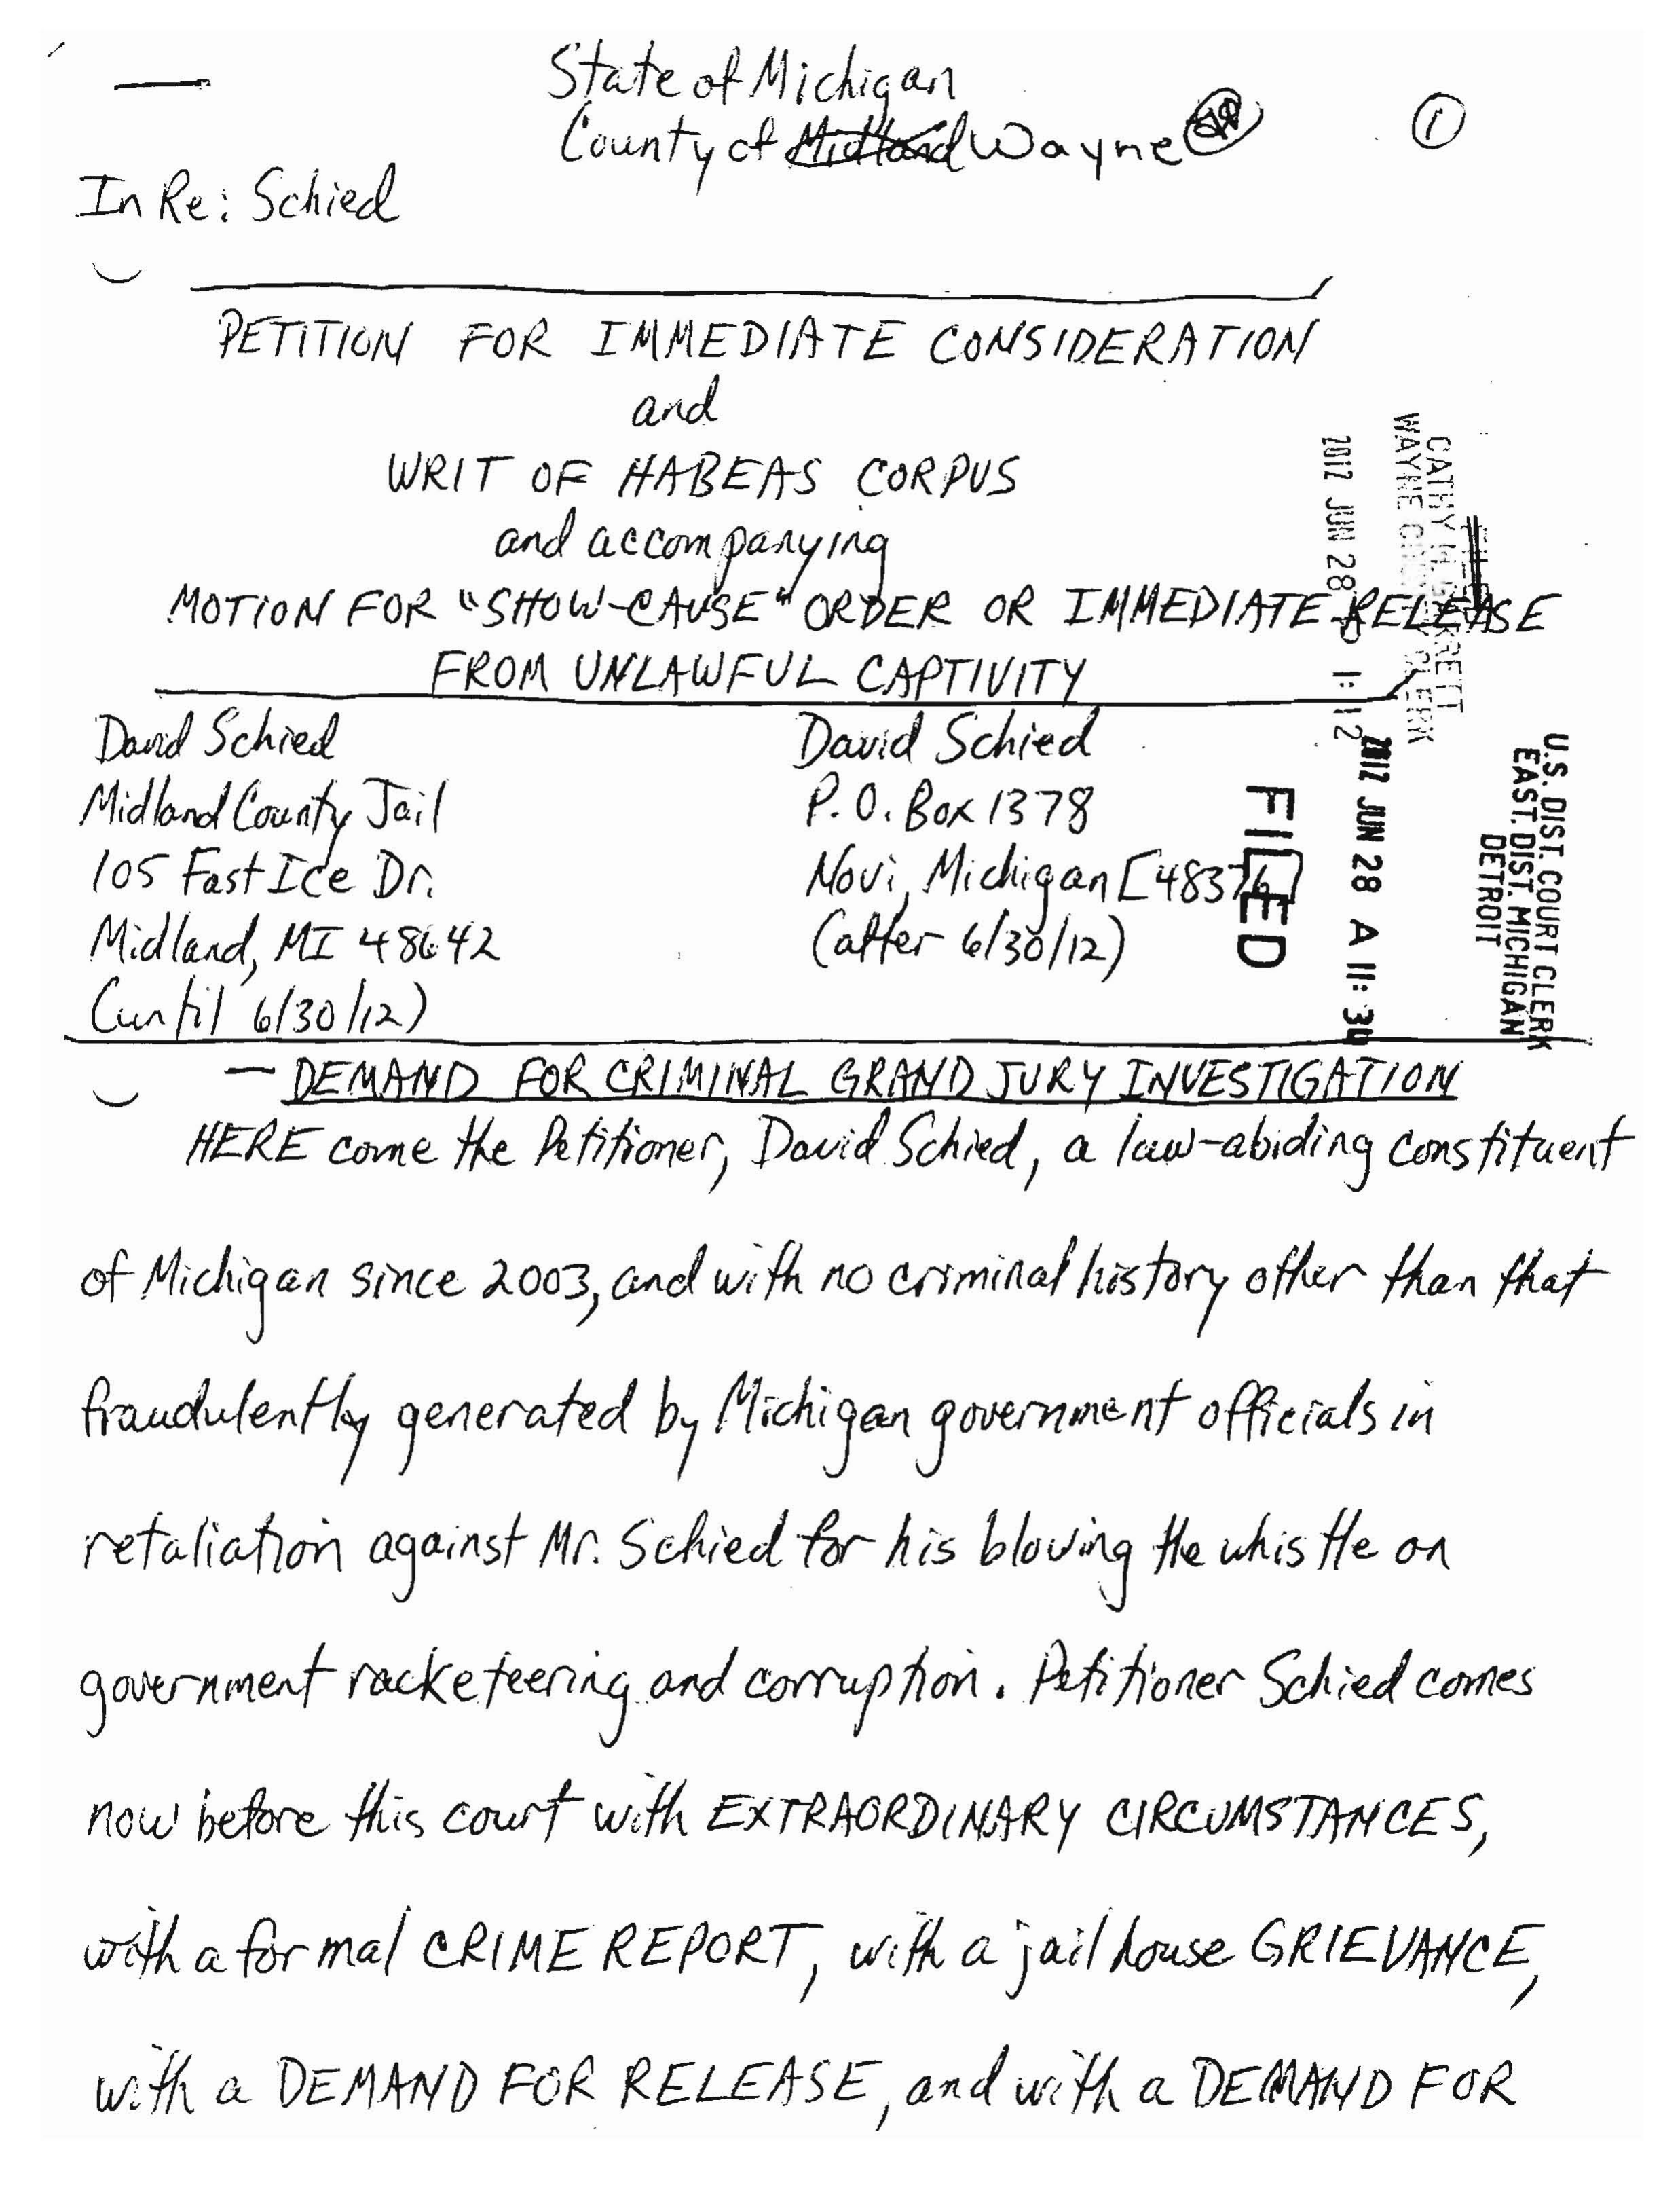 State of Michigan
County of Midland Wayne
1
In Re: Schied
PETITION FOR IMMEDIATE CONSIDERATION
and
WRIT OF HABEAS CORPUS
and accompanying
MOTION FOR "SHOW-CAUSE" ORDER OR IMMEDIATE RELEASE
FROM UNLAWFUL CAPTIVITY
David Schied
Midland County Jail
105 Fast Ice Dr.
Midland, MI 48642
(until 6/30/12)
David Schied
P.O. Box 1378
Novi, Michigan [48376]
(after 6/30/12)
CATHY M. GARRETT
WAYNE COUNTY CLERK
2012 JUN 28 P 1:12
FILED
2012 JUN 28 A 11: 30
U.S. DIST. COURT CLERK
EAST. DIST. MICHIGAN
DETROIT
— DEMAND FOR CRIMINAL GRAND JURY INVESTIGATION
HERE come the Petitioner, David Schied, a law-abiding constituent
of Michigan since 2003, and with no criminal history other than that
fraudulently generated by Michigan government officials in
retaliation against Mr. Schied for his blowing the whistle on
government racketeering and corruption. Petitioner Schied comes
now before this court with EXTRAORDINARY CIRCUMSTANCES,
with a formal CRIME REPORT, with a jailhouse GRIEVANCE,
with a DEMAND FOR RELEASE, and with a DEMAND FOR